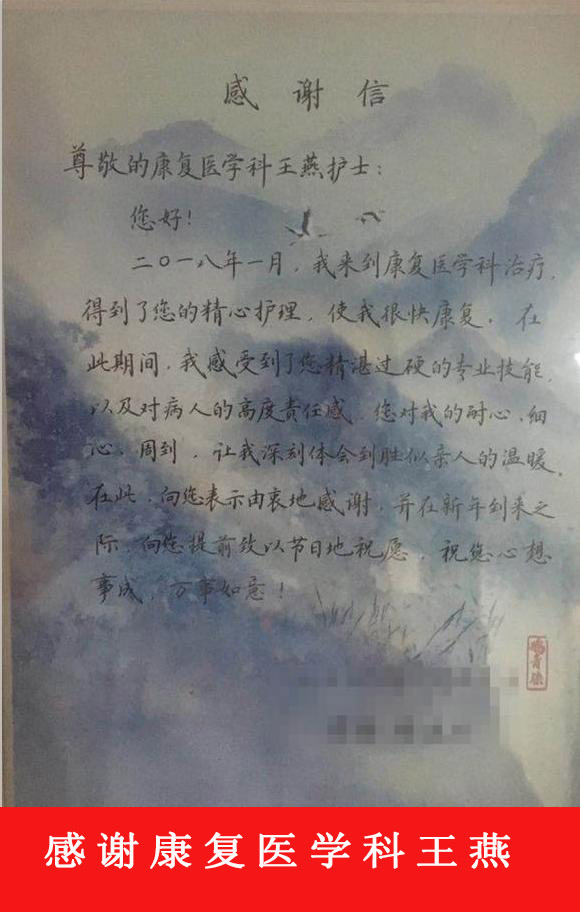 感谢信
尊敬的康复医学科王燕护士：
您好！
二〇一八年一月，我来到康复医学科治疗，
得到了您的精心护理，使我很快康复。在
此期间，我感受到了您精湛过硬的专业技能，
以及对病人的高度责任感。您对我的耐心、细
心、周到，让我深刻体会到胜似亲人的温暖。
在此，向您表示由衷地感谢，并在新年到来之
际，向您提前致以节日地祝愿，祝您心想
事成，万事如意！
感谢康复医学科王燕